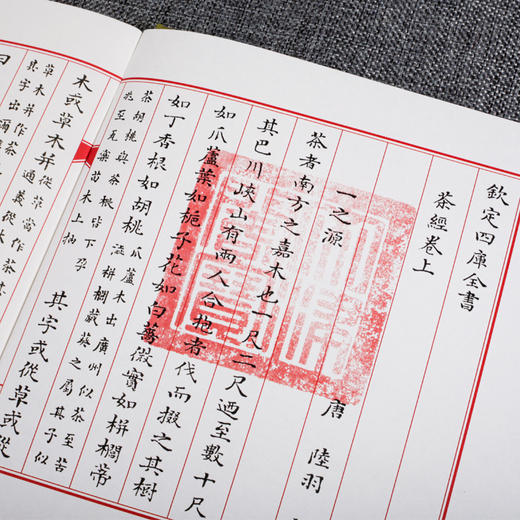 欽定四庫全書
茶經卷上
唐 陸羽
一之源
茶者南方之嘉木也一尺二尺迺至數十尺
其巴川峽山有兩人合抱者伐而掇之其樹
如瓜蘆葉如梔子花如白薔薇實如栟櫚蒂
如丁香根如胡桃瓜蘆木出廣州似茶至苦
澁栟櫚蒲葵之屬其子似
茶胡桃與茶根皆下孕
兆至瓦礫苗木上抽
其字或從草或從
木或草木并